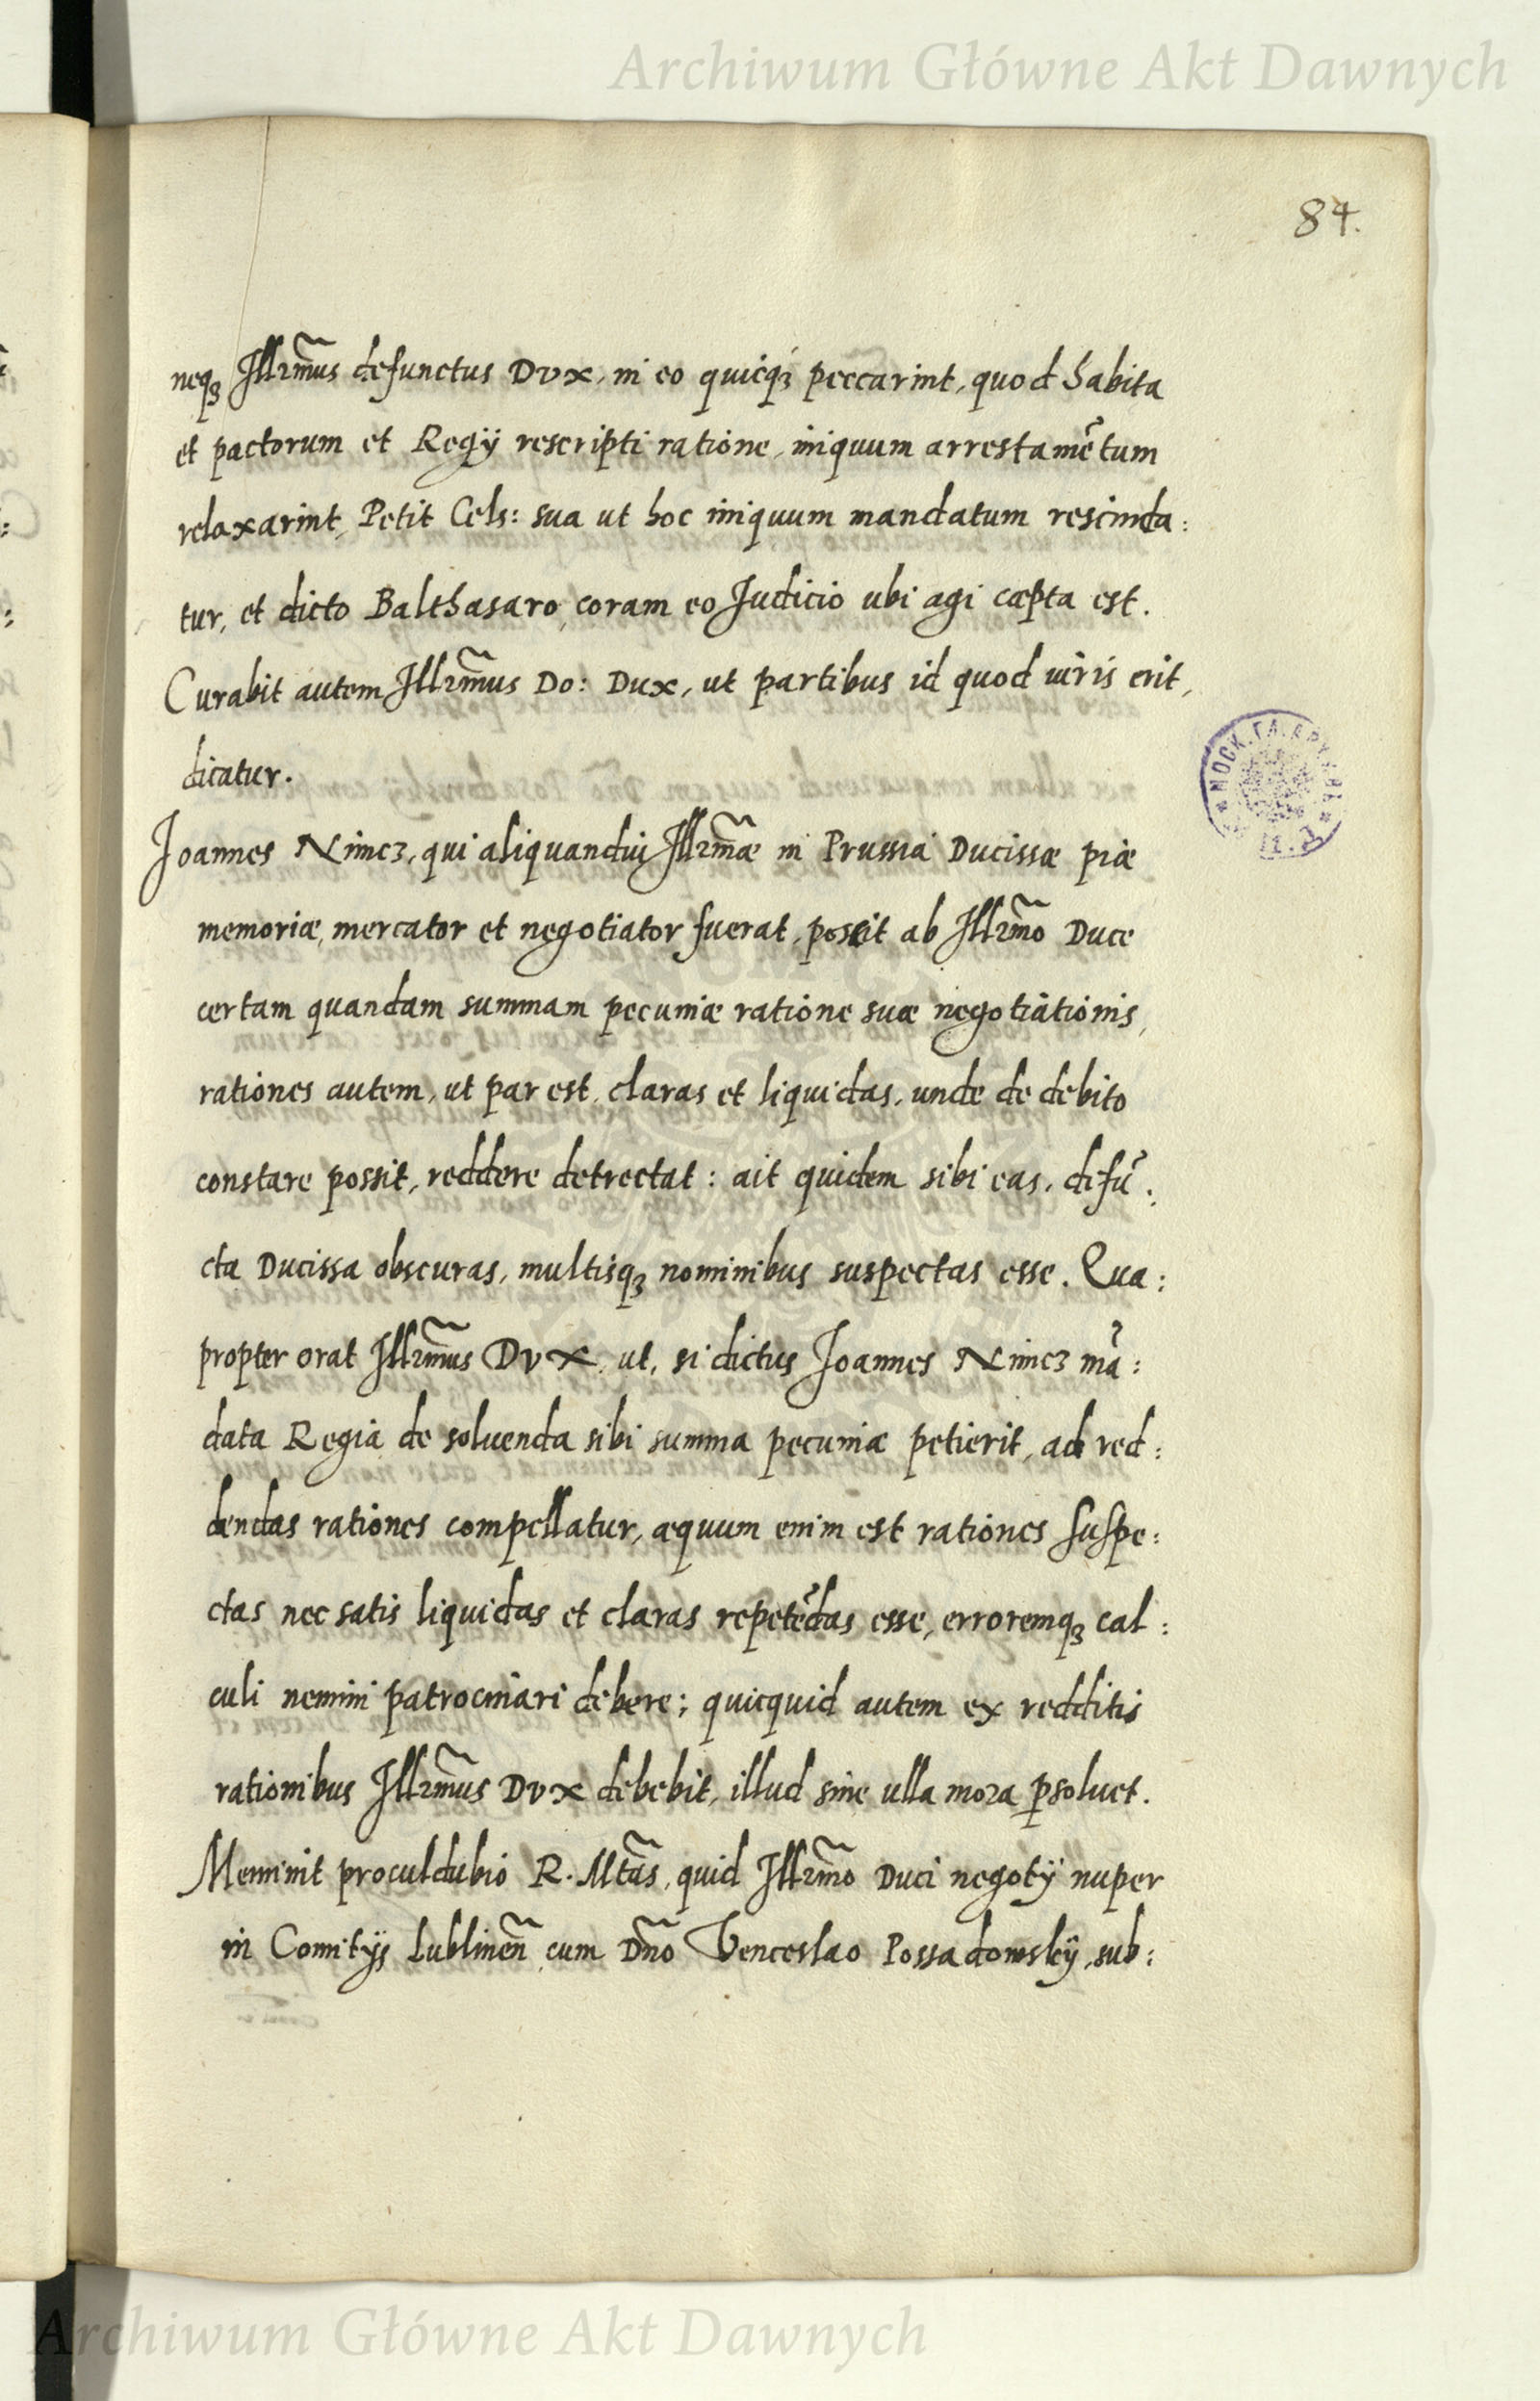 Archiwum Główne Akt Dawnych
84.
neqꝫ Illr̃mus defunctus Dux, in eo quicqꝫ peccarint, quod habita
et pactorum et Regÿ rescripti ratione, iniquum arrestamẽtum
relaxarint, Petit Cels: sua ut hoc iniquum mandatum rescinda:
tur, et dicto Balthasaro, coram eo Judicio ubi agi cæpta est.
Curabit autem Illr̃mus Do: Dux, ut partibus id quod iuris erit,
dicatur.
Joannes Nimcz, qui aliquandiu Illr̃mæ in Prussia Ducissæ piæ
memoriæ, mercator et negotiator fuerat, poscit ab Illr̃mo Duce
certam quandam summam pecuniæ ratione suæ negotiationis,
rationes autem, ut par est, claras et liquidas, unde de debito
constare possit, reddere detrectat: ait quidem sibi eas, defũ:
cta Ducissa obscuras, multisqꝫ nominibus suspectas esse. Qua:
propter orat Illr̃mus Dux, ut, si dictus Joannes Nimcz mã:
data Regia de soluenda sibi summa pecuniæ petierit, ad red:
dendas rationes compellatur, æquum enim est rationes suspe:
ctas nec satis liquidas et claras repetẽdas esse, erroremqꝫ cal:
culi nemini patrocinari debere; quicquid autem ex redditis
rationibus Illr̃mus Dux debebit, illud sine ulla mora ꝑsoluet.
Meminit proculdubio R. Mtãs, quid Illr̃mo Duci negotÿ nuper
in Comitÿs Lublineñ cum Dño Venceslao Possadowskÿ, sub:
МОСК. ГЛ. АРХИВЪ
М. И. Д.
Archiwum Główne Akt Dawnych